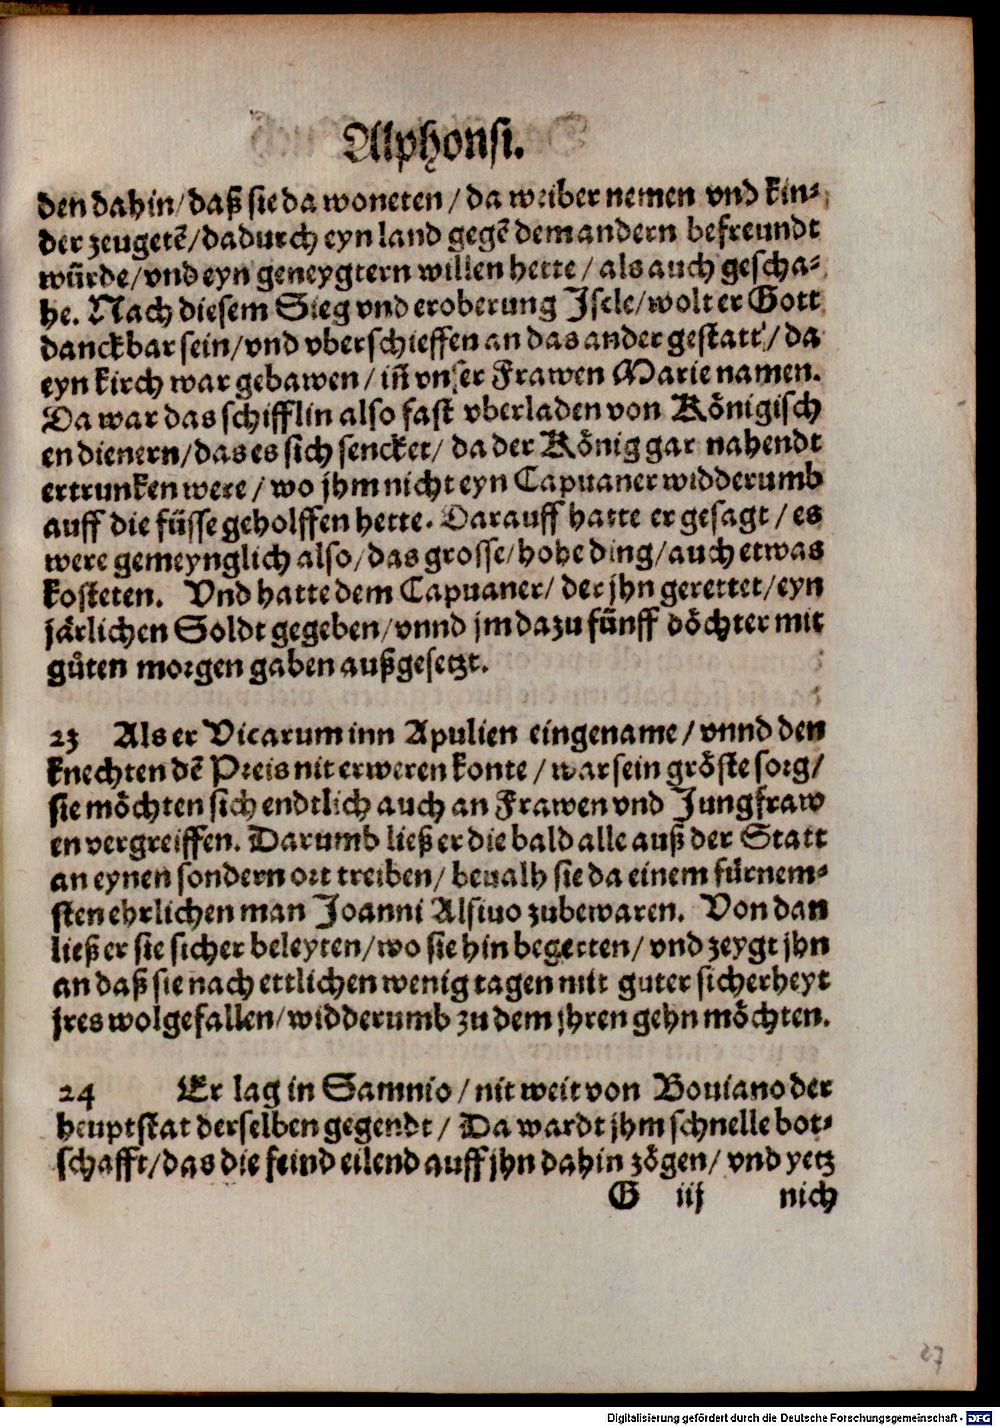 Alphonsi.
den dahin/daß sie da woneten / da weiber nemen vnd kin-
der zeugetẽ/dadurch eyn land gegẽ dem andern befreundt
würde/vnd eyn geneygtern willen hette / als auch gescha-
he. Nach diesem Sieg vnd eroberung Isele/wolt er Gott
danckbar sein/vnd vberschieffen an das ander gestatt/ da
eyn kirch war gebawen / in vnser Frawen Marie namen.
Da war das schifflin also fast vberladen von Königisch
en dienern/das es sich sencket/ da der König gar nahendt
ertrunken were / wo jhm nicht eyn Capuaner widderumb
auff die füsse geholffen hette. Darauff hatte er gesagt / es
were gemeynglich also/das grosse/hohe ding/auch etwas
kosteten. Vnd hatte dem Capuaner/ der jhn gerettet/eyn
järlichen Soldt gegeben/vnnd jm dazu fünff döchter mit
gůten morgen gaben außgesetzt.
23 Als er Vicarum inn Apulien eingename / vnnd den
knechten dẽ Preis nit erweren konte / war sein gröste sorg/
sie möchten sich endtlich auch an Frawen vnd Jungfraw
en vergreiffen. Darumb ließ er die bald alle auß der Statt
an eynen sondern ort treiben/ beualh sie da einem fürnem-
sten ehrlichen man Joanni Alsiuo zubewaren. Von dan
ließ er sie sicher beleyten/wo sie hin begerten/ vnd zeygt jhn
an daß sie nach ettlichen wenig tagen mit guter sicherheyt
jres wolgefallen/widderumb zu dem jhren gehn möchten.
24 Er lag in Samnio / nit weit von Bouiano der
heuptstat derselben gegendt / Da wardt jhm schnelle bot-
schafft/das die feind eilend auff jhn dahin zögen/ vnd yetz
G iij nich
27
Digitalisierung gefördert durch die Deutsche Forschungsgemeinschaft - DFG